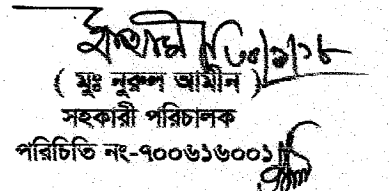 ৩০/৯/১৮
( মুঃ নুরুল আমীন )
সহকারী পরিচালক
পরিচিতি নং-৭০০৬১৬০০১